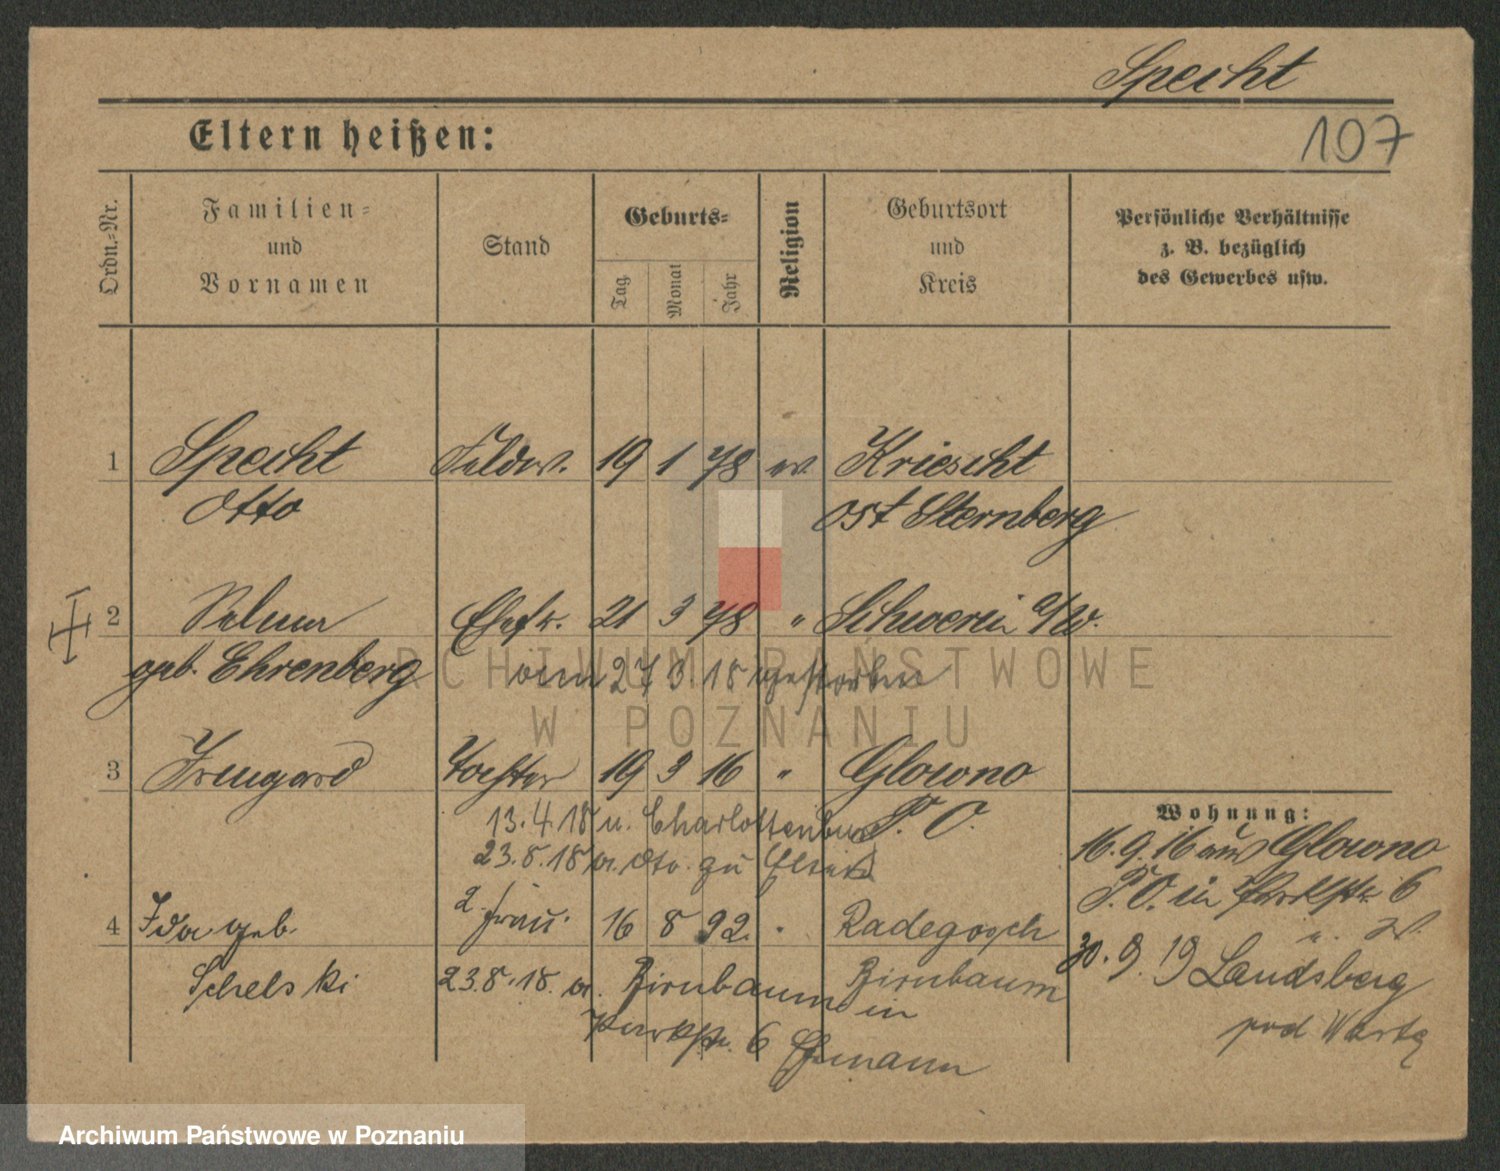 Specht
107
Eltern heißen:
Ordn.-Nr.
Familien-
und
Vornamen
Stand
Geburts-
Tag
Monat
Jahr
Religion
Geburtsort
und
Kreis
Persönliche Verhältnisse
z. B. bezüglich
des Gewerbes usw.
1 Specht Feldw. 19 1 78 ev Kriescht
Otto Ost Sternberg
2 Selma Ehefr. 21 3 78 " Schwerin a/W.
geb. Ehrenberg am 27 3 18 gestorben
3 Irmgard Tochter 19 3 16 " Glowno
P. O.
13.4.18 n. Charlottenburg
23.8.18 v. dto. zu Eltern
Wohnung:
16.9.16 aus Glowno
P.O. in Parkstr. 6
4 Ida geb. 2. Frau 16 8 92 Radegosch
Schelski 23.8.18. v. Birnbaum in Birnbaum
Parkstr. 6 Ehemann
30.9.19 Landsberg
Warta
ARCHIWUM PAŃSTWOWE
W POZNANIU
Archiwum Państwowe w Poznaniu